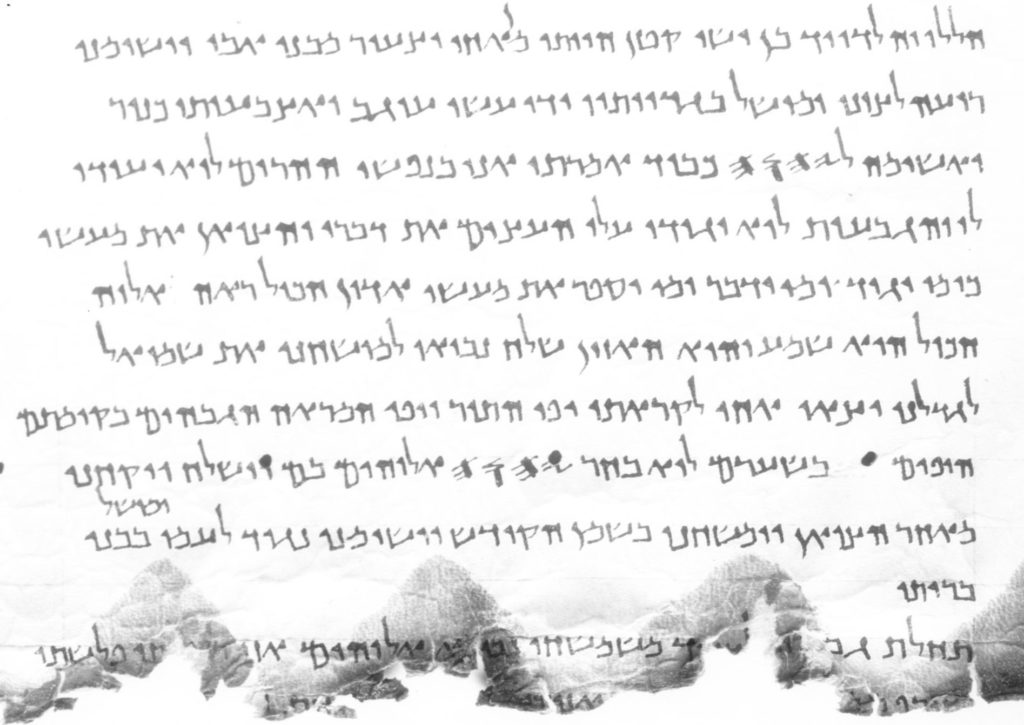 הללויה לדויד בן ישי קטן הייתי מאחי וצעיר מבני אבי וישימני
רועה לצונו ומושל בגדיותיו ידי עשו עוגב ואצבעותי כנור
ואשימה ל𐤉𐤄𐤅𐤄 כבוד אמרתי אני בנפשי ההרים לוא יעידו
לי והגבעות לוא יגידו עלי העצים את דברי והצואן את מעשי
כי מי יגיד ומי ידבר ומי יספר את מעשי אדון הכול ראה אלוה
הכול הוא שמע והוא האזין שלח נביאו למושחני את שמואל
לגדלני יצאו אחי לקראתו יפי התור ויפי המראה הגבהים בקומתם
היפים בשערם לוא בחר 𐤉𐤄𐤅𐤄 אלוהים בם וישלח ויקחני
ומושל
מאחר הצואן וימשחני בשמן הקודש וישימני נגיד לעמו בבני
בריתו
תחלת משמשחו אלוהים פלשתי